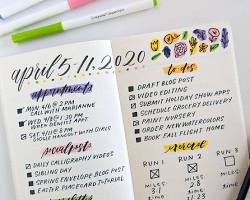 april 5-11, 2020
appointments
MON 4/6 @ 2 PM
CALL WITH MARIANNE
WED 4/8 @
SAT 4/11 @ 8 PM
WITH GIRLS
DAILY CALLIGRAPHY VIDEOS
SIBLING DAY
SPRING ENVELOPE BLOG POST
EASTER POSTCARD TUTORIAL
to-dos
DRAFT BLOG POST
VIDEO EDITING
SUBMIT HOLIDAY SHOW APPS
SCHEDULE GROCERY DELIVERY
PAINT NURSERY
ORDER NEW WATERCOLORS
BOOK FALL FLIGHT HOME
RUN 1
RUN 2
RUN 3
MILES:
MILES:
MILES: